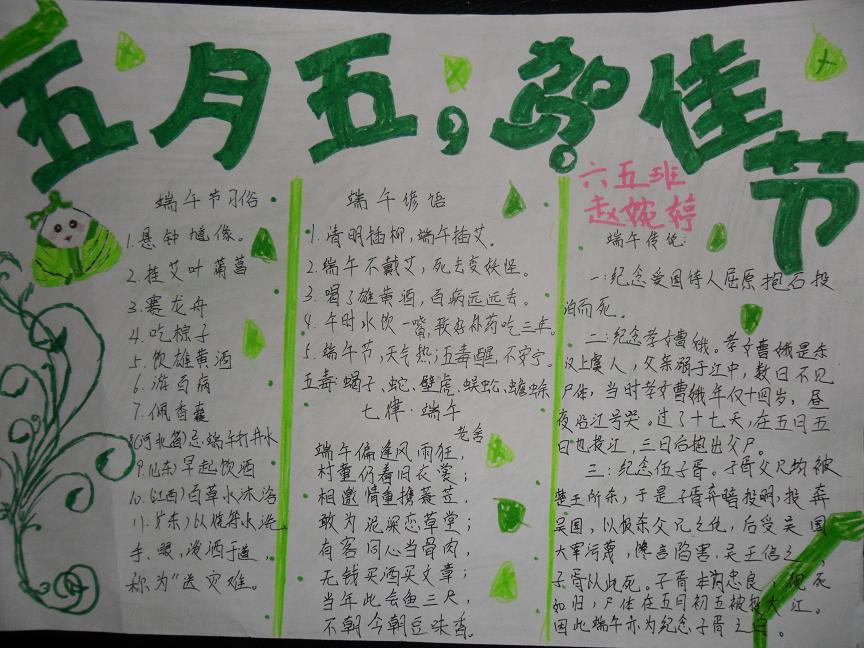 五月五，贺佳节
六五班
赵婉婷
端午节习俗
1.悬钟馗像。
2.挂艾叶菖蒲
3.赛龙舟
4.吃粽子
5.饮雄黄酒
6.游百病
7.佩香囊
8(河北省)忌端午打井水
9.(山东)早起饮酒
10.(江西)百草水沐浴
11.(广东)以烧符水洗
手、眼，泼洒于道，
称为"送灾难。
端午谚语
1.清明插柳，端午插艾。
2.端午不戴艾，死去变妖怪。
3.喝了雄黄酒，百病远远去。
4.午时水饮一嘴，较好补药吃三年。
5.端午节，天气热；五毒醒，不安宁。
五毒：蝎子、蛇、壁虎、蜈蚣、蟾蜍
七律·端午
老舍
端午偏逢风雨狂，
村童仍着旧衣裳；
相邀情重携蓑笠，
敢为泥深恋草堂；
有客同心当骨肉，
无钱买酒买文章；
当年此会鱼三尺，
不朝今朝豆味香。
端午传说：
一：纪念爱国诗人屈原抱石投
泊而死。
二：纪念孝女曹娥。孝女曹娥是东
汉上虞人，父亲溺于江中，数日不见
尸体，当时孝女曹娥年仅十四岁，昼
夜沿江号哭。过了十七天，在五月五
日也投江，三日后抱出父尸。
三：纪念伍子胥。子胥父兄均被
楚王所杀，于是子胥弃暗投明，投奔
吴国，以报杀父兄之仇，后受吴国
大宰污蔑，谗言陷害，吴王信之，
子胥以此死。子胥本为忠良，视死
如归，尸体在五月初五被投大江。
因此端午亦为纪念子胥之日。